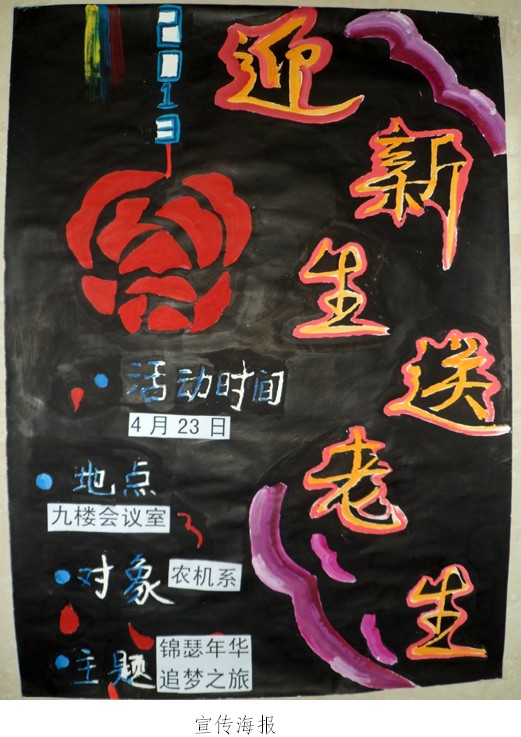 2013
迎新生送老生
活动时间
4月23日
地点
九楼会议室
对象 农机系
主题 锦瑟年华
追梦之旅
宣传海报